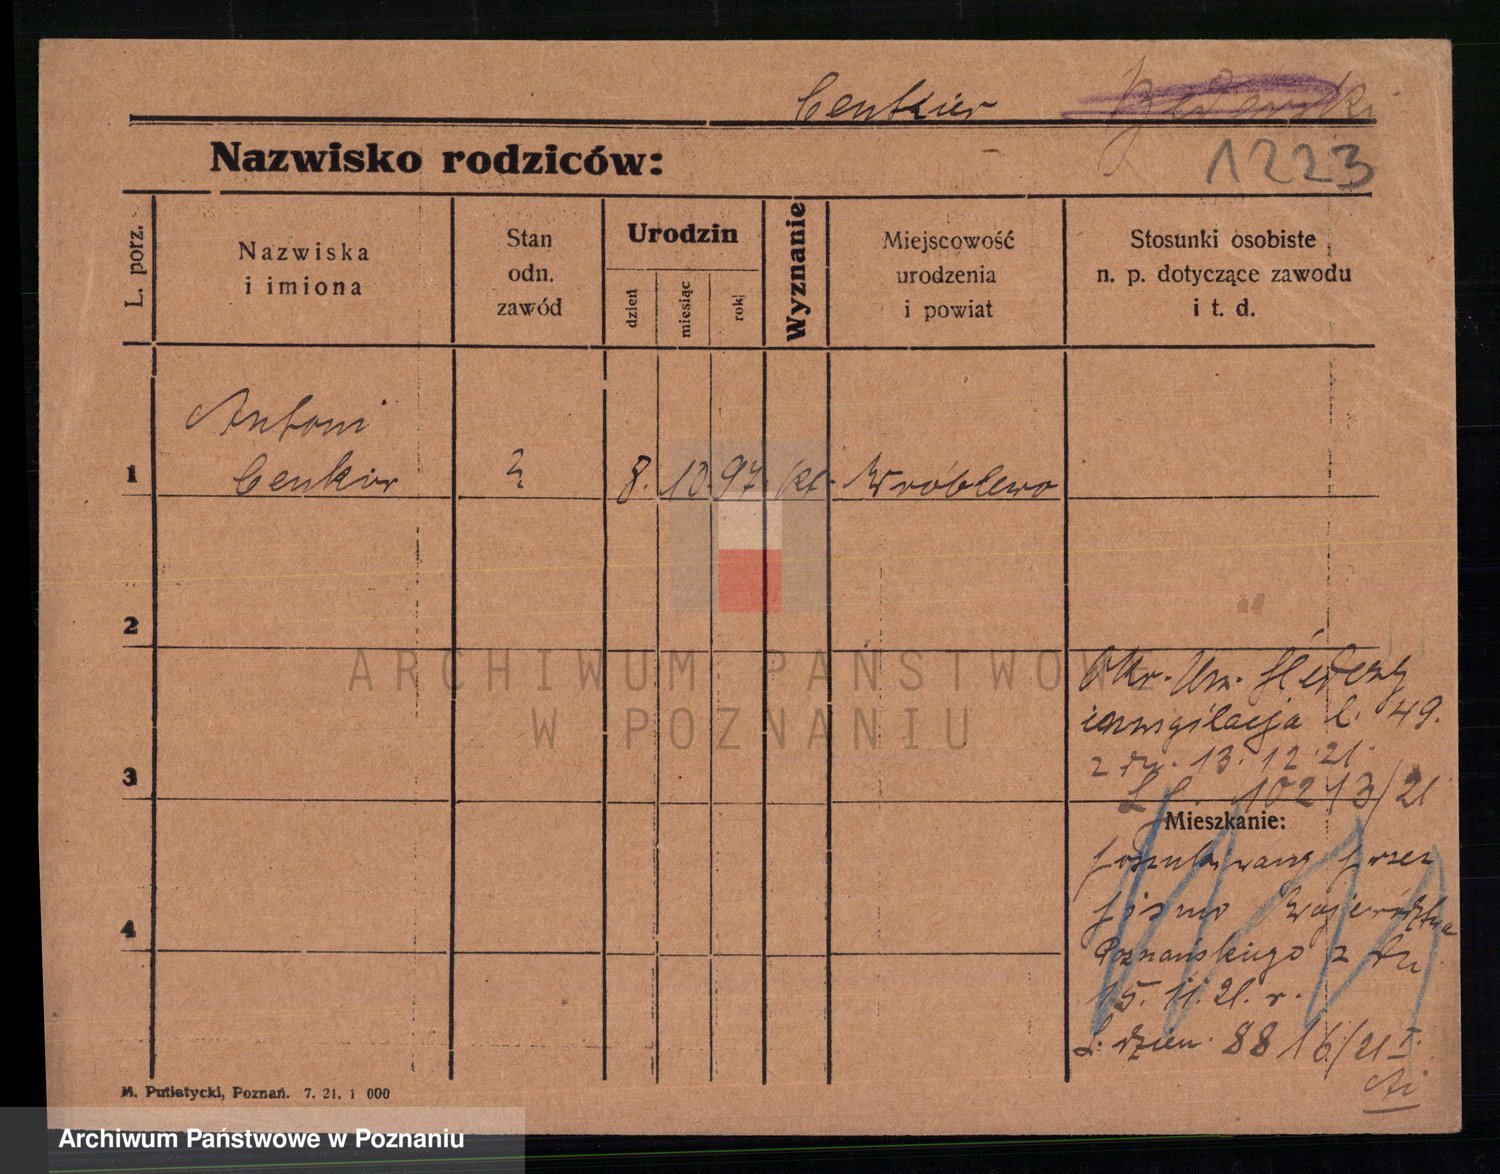 Cenkier
1223
Nazwisko rodziców:
L. porz.
Nazwiska
i imiona
Stan
odn.
zawód
Urodzin
dzień
miesiąc
rok
Wyznanie
Miejscowość
urodzenia
i powiat
Stosunki osobiste
n. p. dotyczące zawodu
i t. d.
Antoni
1 Cenkier 8. 10. 97. kt. Wróblewo
2
Okr. Urz. Śledczy
inwigilacja l. 49.
z dn. 13. 12. 21.
3
10213/21
Mieszkanie:
poszukiwany przez
pismo Województwa
4
Poznańskiego z dn
15. 11. 21. r.
L. dzien. 8816/21 I.
M. Putiatycki, Poznań. 7. 21. 1 000
ARCHIWUM PAŃSTWOWE
W POZNANIU
Archiwum Państwowe w Poznaniu